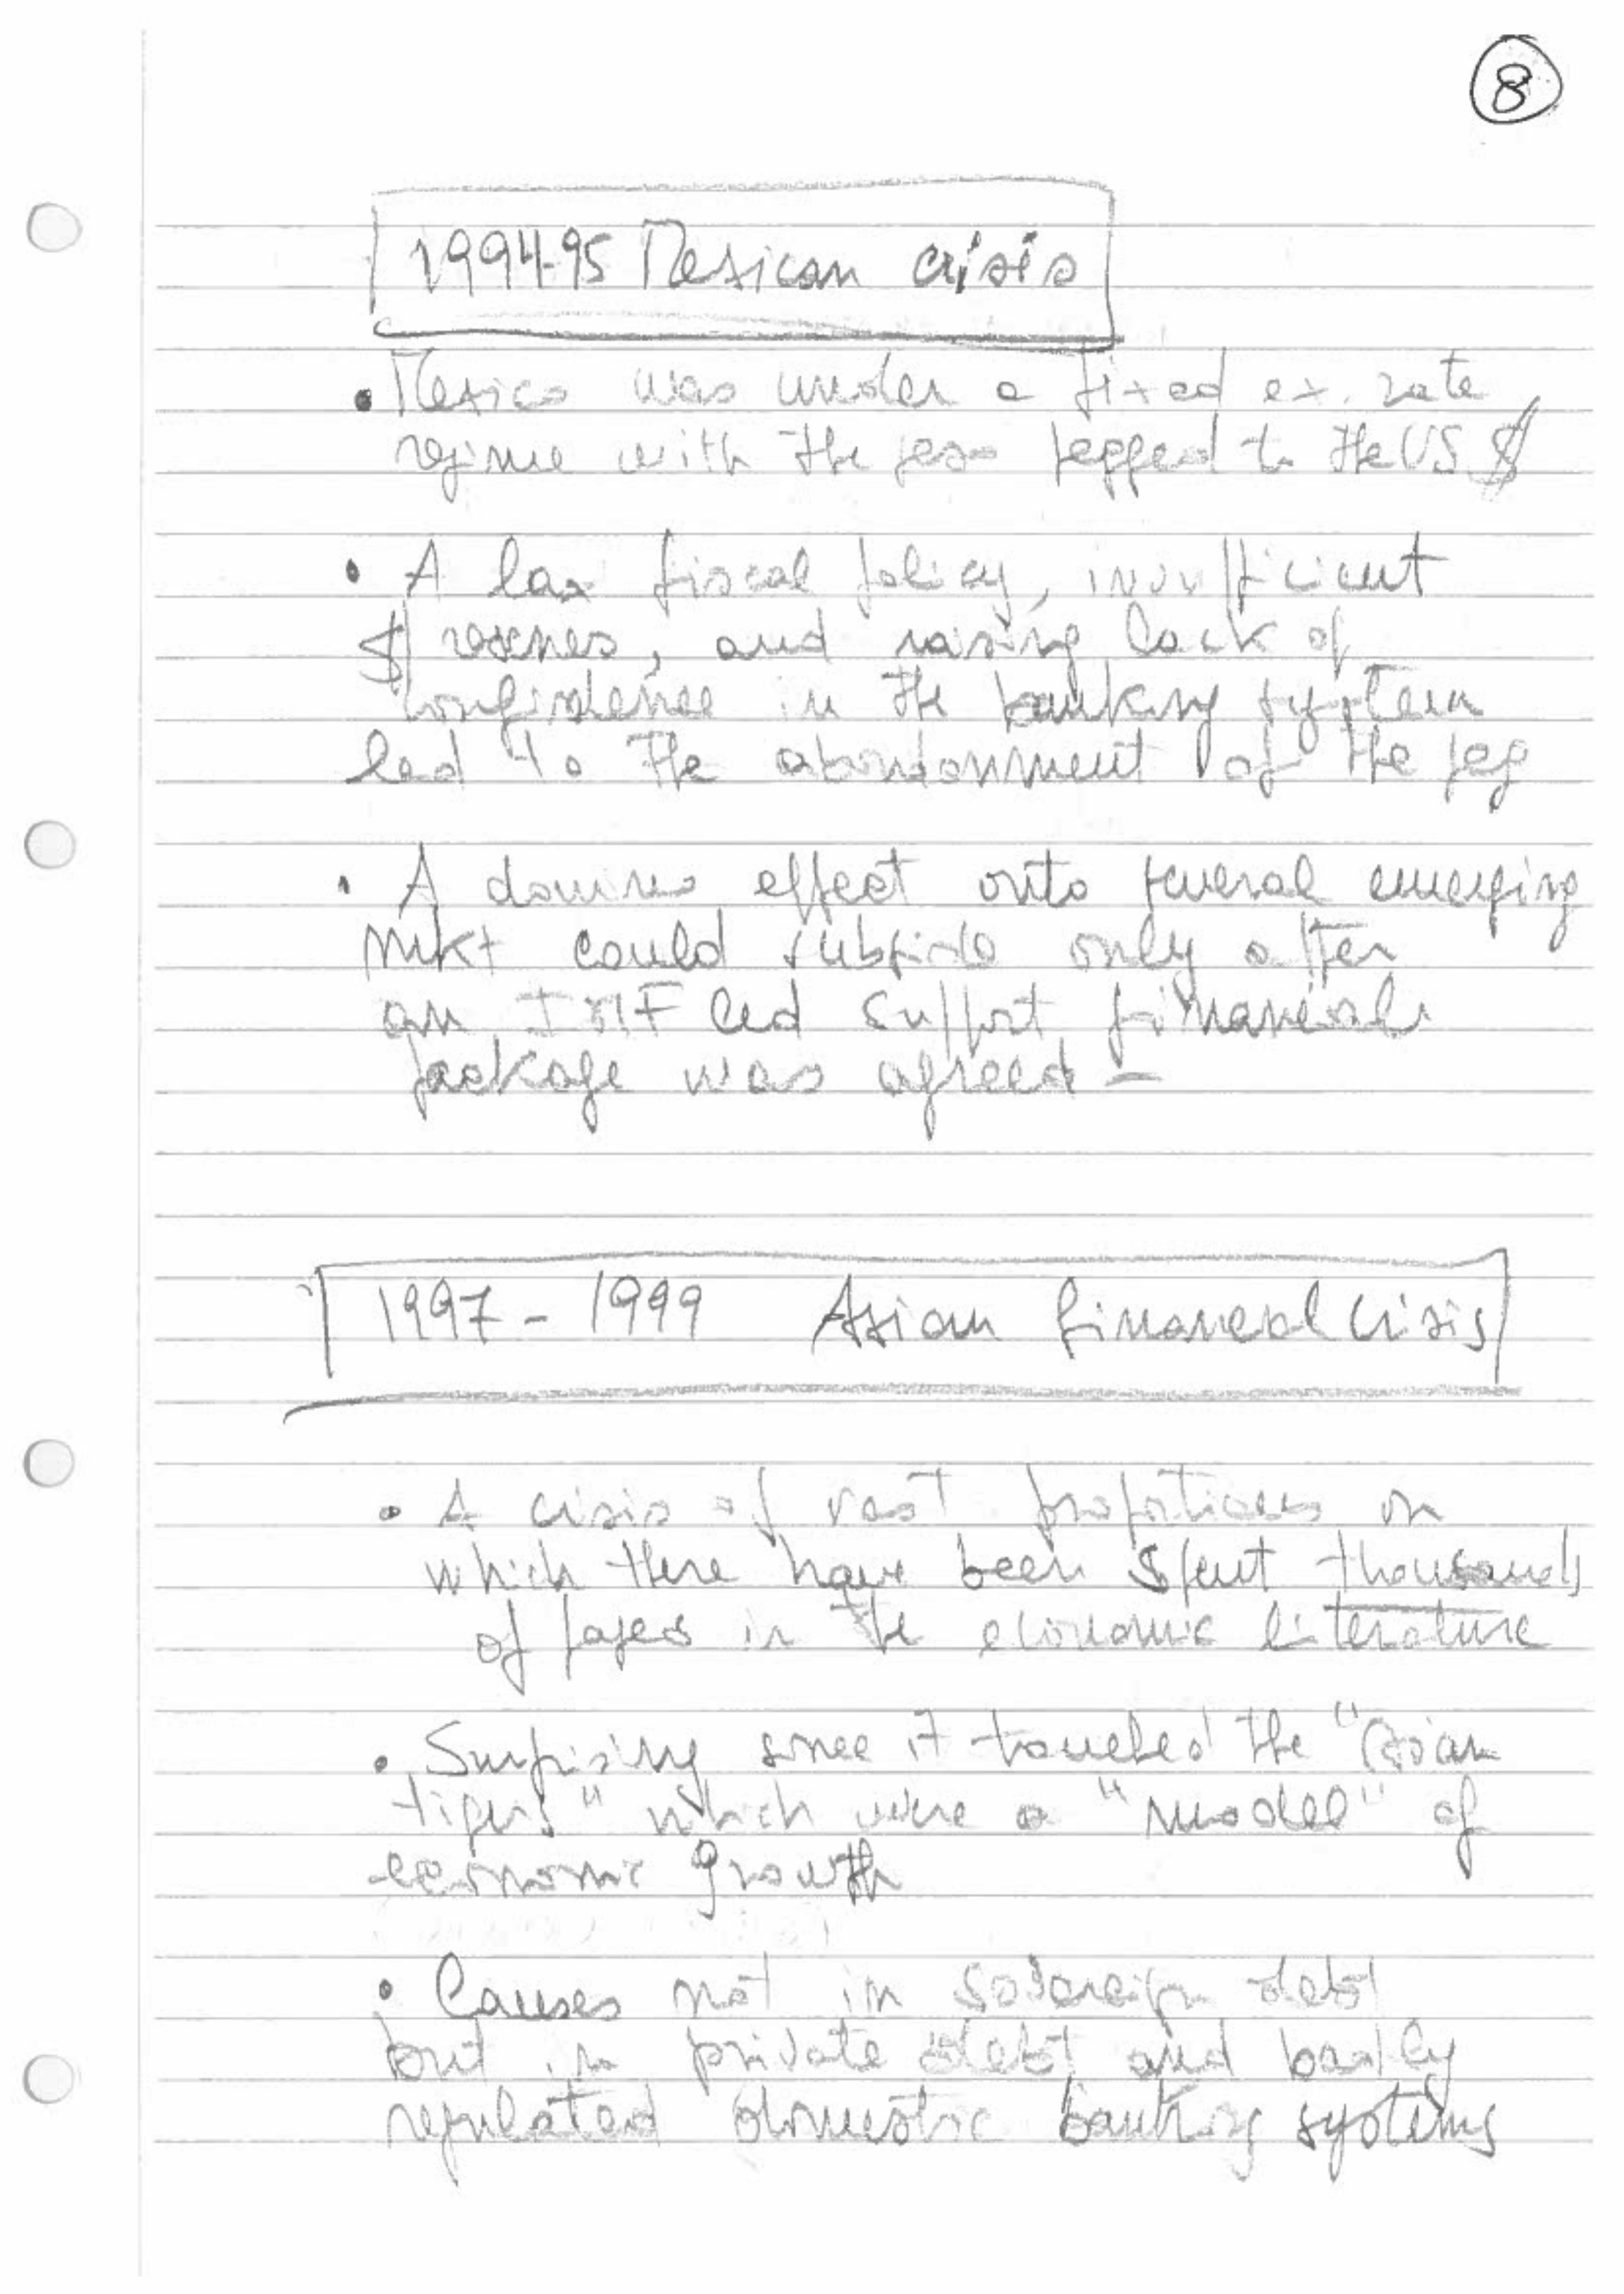 8
1994-95 Mexican crisis
• Mexico was under a fixed ex. rate
regime with the peso pegged to the US $
• A lax fiscal policy, insufficient
$ reserves, and raising lack of
confidence in the banking system
led to the abandonment of the peg
• A domino effect onto several emerging
mkt could subside only after
an IMF led support financial
package was agreed -
1997 - 1999 Asian financial crisis
• A crisis of vast proportions on
which there have been spent thousands
of pages in the economic literature
• Surprising since it touched the "Asian
tigers" which were a "model" of
economic growth
• Causes not in sovereign debt
but in private debt and badly
regulated domestic banking systems